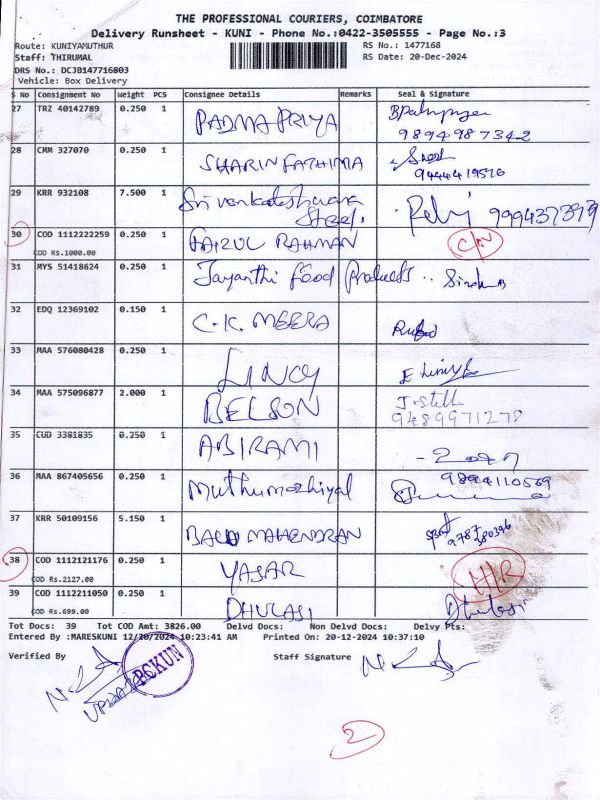 THE PROFESSIONAL COURIERS, COIMBATORE
Delivery Runsheet - KUNI - Phone No.:0422-3505555 - Page No.:3
Route: KUNIYAMUTHUR RS No.: 1477168
Staff: THIRUMAL RS Date: 20-Dec-2024
DRS No.: DCJB147716803
Vehicle: Box Delivery
S No Consignment No Weight PCS Consignee Details Remarks Seal & Signature
27 TRZ 40142789 0.250 1 PADMA PRIYA
9894987342
28 CMM 327070 0.250 1 SHARIN FATHIMA
9444419576
29 KRR 932108 7.500 1 Sri venkateshwara
Steel.
30 COD 1112222259 0.250 1 FAIZUL RAHMAN C/N
COD RS.1000.00
31 MYS 51418624 0.250 1 Jayanthi food Products
32 EDQ 12369102 0.150 1 C.K. MEERA
33 MAA 576080428 0.250 1 LINCY
34 MAA 575096877 2.000 1 BELSON
9489971278
35 CUD 3381835 0.250 1 ABIRAMI
36 MAA 867405656 0.250 1 Muthumozhiyal 9894110569
37 KRR 50109156 5.150 1 BALU MAHENDRAN
9787
380396
38 COD 1112121176 0.250 1 YASAR
COD RS.2127.00
39 COD 1112211050 0.250 1 DHULASI Dhulasi
COD RS.699.00
Tot Docs: 39 Tot COD Amt: 3826.00 Delvd Docs: Non Delvd Docs: Delvy Pts:
Entered By :MARESKUNI 12/20/2024 10:23:41 AM Printed On: 20-12-2024 10:37:10
Verified By Staff Signature
PCKUN
2